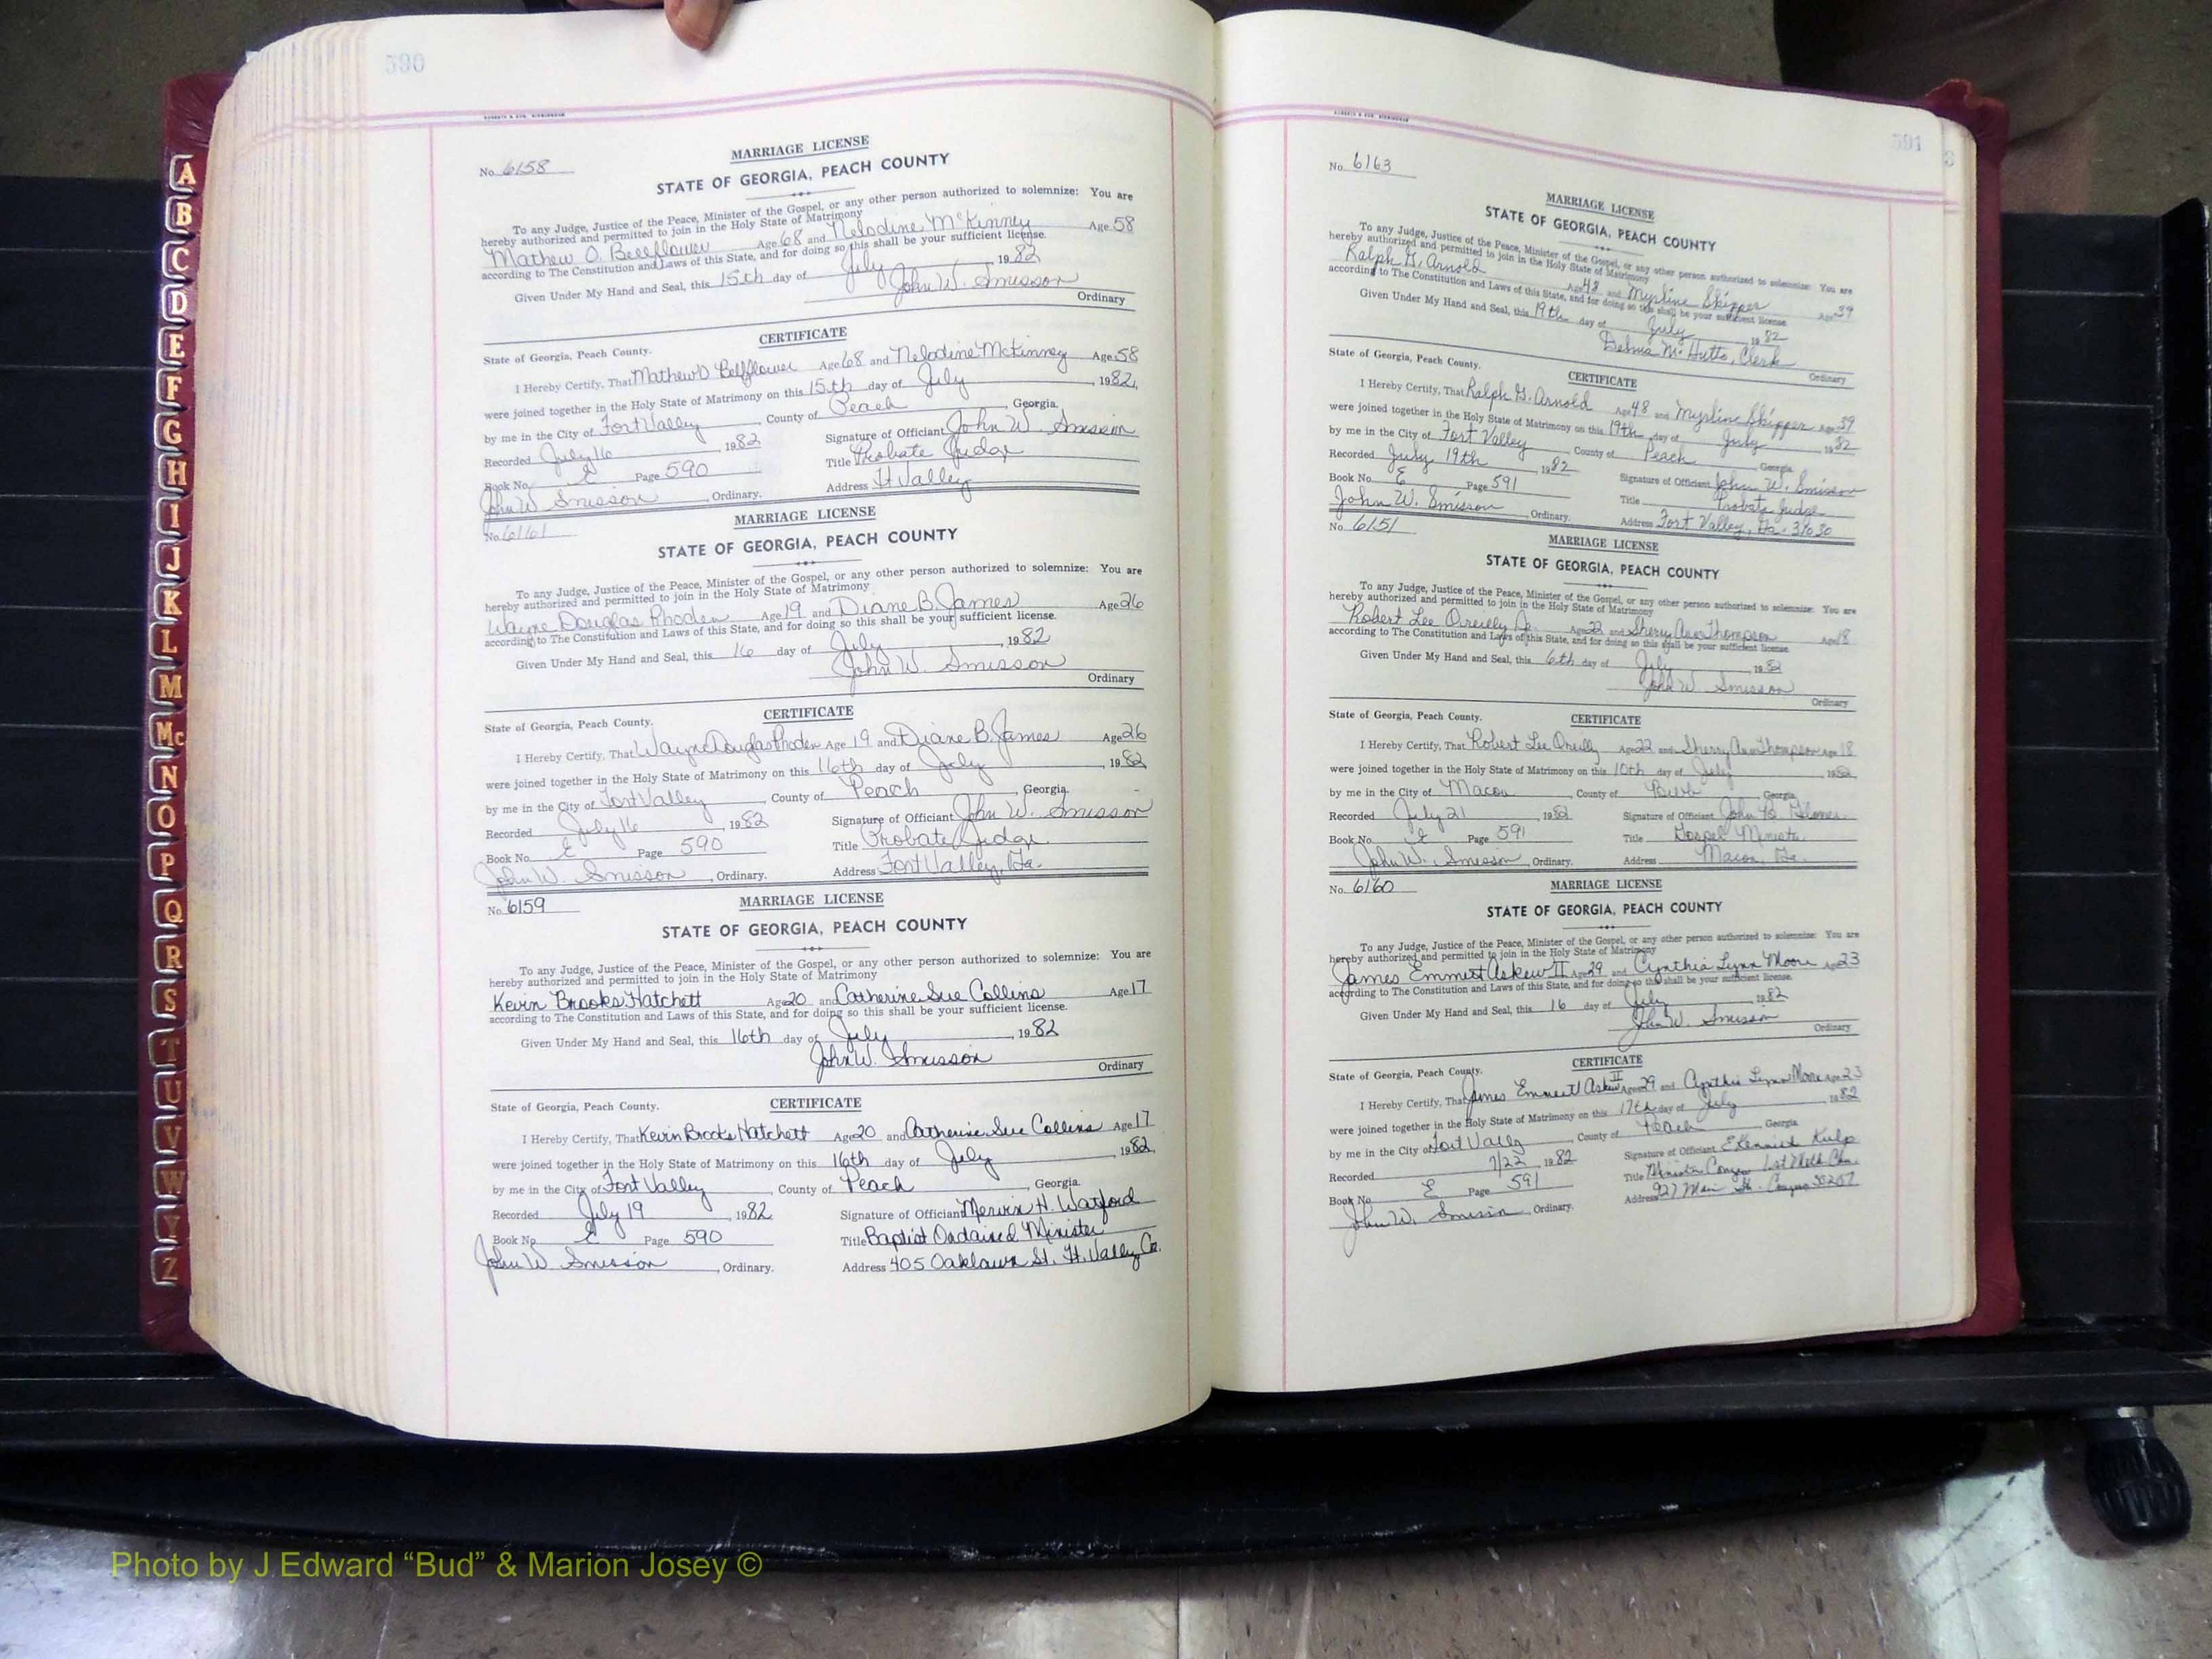 590
MARRIAGE LICENSE
No. 6158
STATE OF GEORGIA, PEACH COUNTY
To any Judge, Justice of the Peace, Minister of the Gospel, or any other person authorized to solemnize: You are
hereby authorized and permitted to join in the Holy State of Matrimony
Mathew O. Bellflower Age 68 and Nelodine McKinney Age 58
according to The Constitution and Laws of this State, and for doing so this shall be your sufficient license.
Given Under My Hand and Seal, this 15th day of July, 1982
John W. Smisson
Ordinary
CERTIFICATE
State of Georgia, Peach County.
I Hereby Certify, That Mathew O Bellflower Age 68 and Nelodine McKinney Age 58
were joined together in the Holy State of Matrimony on this 15th day of July, 1982,
by me in the City of Fort Valley, County of Peach, Georgia.
Recorded July 16, 1982 Signature of Officiant John W. Smisson
Book No. E Page 590 Title Probate Judge
John W Smisson, Ordinary. Address Ft Valley
No. 6161
MARRIAGE LICENSE
STATE OF GEORGIA, PEACH COUNTY
To any Judge, Justice of the Peace, Minister of the Gospel, or any other person authorized to solemnize: You are
hereby authorized and permitted to join in the Holy State of Matrimony
Wayne Douglas Rhoden Age 19 and Diane B. James Age 26
according to The Constitution and Laws of this State, and for doing so this shall be your sufficient license.
Given Under My Hand and Seal, this 16 day of July, 1982
John W. Smisson
Ordinary
CERTIFICATE
State of Georgia, Peach County.
I Hereby Certify, That Wayne Douglas Rhoden Age 19 and Diane B. James Age 26
were joined together in the Holy State of Matrimony on this 16th day of July, 1982
by me in the City of Fort Valley, County of Peach, Georgia.
Recorded July 16, 1982 Signature of Officiant John W. Smisson
Book No. E Page 590 Title Probate Judge
John W. Smisson, Ordinary. Address Fort Valley, Ga.
No. 6159
MARRIAGE LICENSE
STATE OF GEORGIA, PEACH COUNTY
To any Judge, Justice of the Peace, Minister of the Gospel, or any other person authorized to solemnize: You are
hereby authorized and permitted to join in the Holy State of Matrimony
Kevin Brooks Hatchett Age 20 and Catherine Sue Collins Age 17
according to The Constitution and Laws of this State, and for doing so this shall be your sufficient license.
Given Under My Hand and Seal, this 16th day of July, 1982
John W. Smisson
Ordinary
CERTIFICATE
State of Georgia, Peach County.
I Hereby Certify, That Kevin Brooks Hatchett Age 20 and Catherine Sue Collins Age 17
were joined together in the Holy State of Matrimony on this 16th day of July, 1982,
by me in the City of Fort Valley, County of Peach, Georgia.
Recorded July 19, 1982 Signature of Officiant Mervin H. Watford
Book No. E Page 590 Title Baptist Ordained Minister
John W Smisson, Ordinary. Address 405 Oaklawn St. Ft. Valley Ga.
591
No. 6163
MARRIAGE LICENSE
STATE OF GEORGIA, PEACH COUNTY
To any Judge, Justice of the Peace, Minister of the Gospel, or any other person authorized to solemnize: You are
hereby authorized and permitted to join in the Holy State of Matrimony
Ralph G. Arnold Age 48 and Myrline Skipper Age 39
according to The Constitution and Laws of this State, and for doing so this shall be your sufficient license.
Given Under My Hand and Seal, this 19th day of July 1982
Delma M. Hutto, Clerk
Ordinary
CERTIFICATE
State of Georgia, Peach County.
I Hereby Certify, That Ralph G. Arnold Age 48 and Myrlin Skipper Age 39
were joined together in the Holy State of Matrimony on this 19th day of July 1982
by me in the City of Fort Valley, County of Peach, Georgia
Recorded July 19th, 1982 Signature of Officiant John W. Smisson
Book No. E Page 591 Title Probate Judge
John W. Smisson, Ordinary. Address Fort Valley, Ga. 31030
No. 6151
MARRIAGE LICENSE
STATE OF GEORGIA, PEACH COUNTY
To any Judge, Justice of the Peace, Minister of the Gospel, or any other person authorized to solemnize: You are
hereby authorized and permitted to join in the Holy State of Matrimony
Robert Lee Oreilly Jr. Age 22 and Sherry Ann Thompson Age 18
according to The Constitution and Laws of this State, and for doing so this shall be your sufficient license.
Given Under My Hand and Seal, this 6th day of July, 1982
John W. Smisson
Ordinary
CERTIFICATE
State of Georgia, Peach County.
I Hereby Certify, That Robert Lee Oreilly Age 22 and Sherry Ann Thompson Age 18
were joined together in the Holy State of Matrimony on this 10th day of July, 1982
by me in the City of Macon, County of Bibb, Georgia
Recorded July 21, 1982 Signature of Officiant John B.
Book No. E Page 591 Title Gospel Minister
John W. Smisson, Ordinary. Address Macon, Ga.
No. 6160
MARRIAGE LICENSE
STATE OF GEORGIA, PEACH COUNTY
To any Judge, Justice of the Peace, Minister of the Gospel, or any other person authorized to solemnize: You are
hereby authorized and permitted to join in the Holy State of Matrimony
James Emmett Askew II Age 29 and Cynthia Lynn Moore Age 23
according to The Constitution and Laws of this State, and for doing so this shall be your sufficient license.
Given Under My Hand and Seal, this 16 day of July, 1982
John W. Smisson
Ordinary
CERTIFICATE
State of Georgia, Peach County.
I Hereby Certify, That James Emmett Askew II Age 29 and Cynthia Lynn Moore Age 23
were joined together in the Holy State of Matrimony on this 17th day of July 1982
by me in the City of Fort Vally, County of Peach, Georgia
Recorded 7/22 1982 Signature of Officiant E Kennick Kulp
Book No. E Page 591 Title Minister 1st Meth Chu.
John W. Smisson, Ordinary. Address 927 Main St.
A
B
C
D
E
F
G
H
I
J
K
L
M
Mc
N
O
P
Q
R
S
T
U
V
W
Y
Z
Photo by J Edward “Bud” & Marion Josey ©